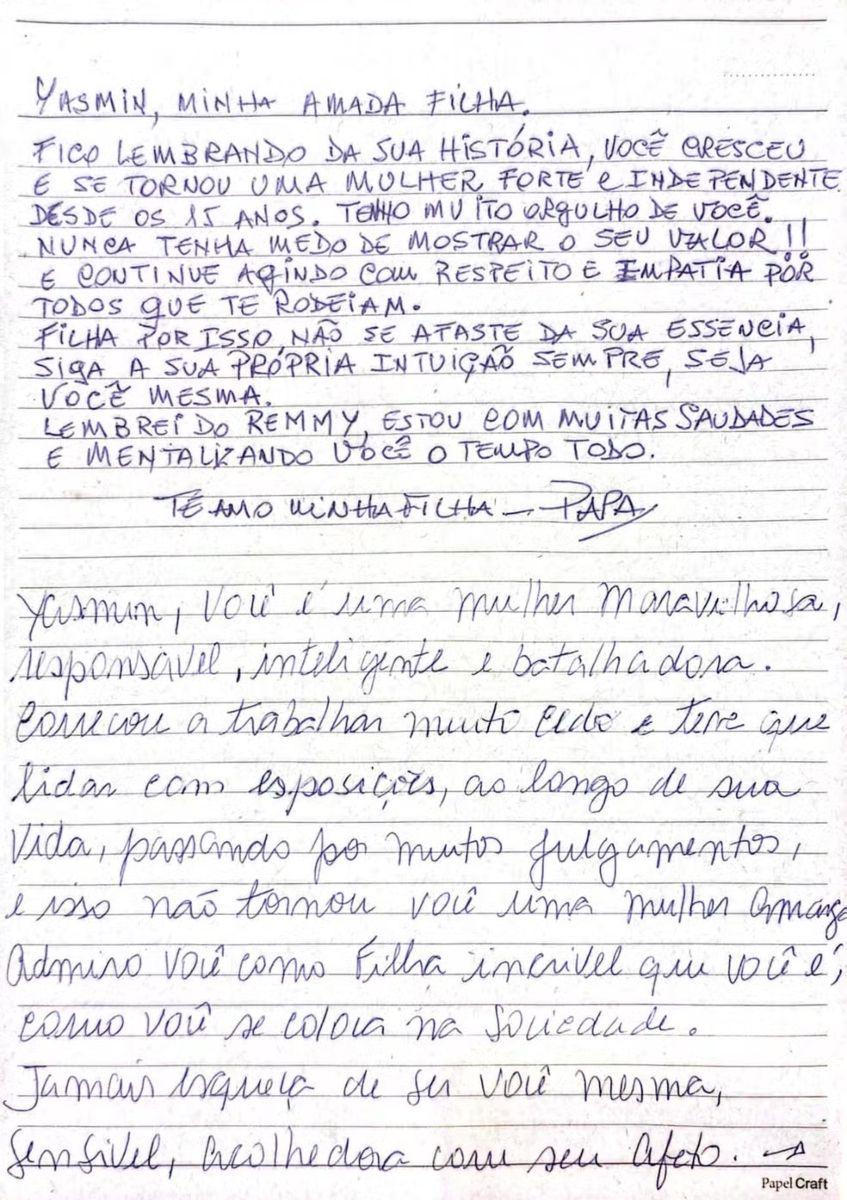 YASMIN, MINHA AMADA FILHA.
FICO LEMBRANDO DA SUA HISTÓRIA, VOCÊ CRESCEU
E SE TORNOU UMA MULHER FORTE e INDEPENDENTE
DESDE OS 15 ANOS. TENHO MUITO ORGULHO DE VOCÊ.
NUNCA TENHA MEDO DE MOSTRAR O SEU VALOR!!
E CONTINUE AGINDO COM RESPEITO E EMPATIA POR
TODOS QUE TE RODEIAM.
FILHA POR ISSO, NÃO SE AFASTE DA SUA ESSENCIA,
SIGA A SUA PRÓPRIA INTUIÇÃO SEMPRE, SEJA
VOCÊ MESMA.
LEMBREI DO REMMY, ESTOU COM MUITAS SAUDADES
E MENTALIZANDO VOCÊ O TEMPO TODO.
TE AMO MINHA FILHA - PAPA
Yasmin, você é uma mulher maravilhosa,
responsavel, inteligente e batalhadora.
Começou a trabalhar muito cedo e teve que
lidar com esposições, ao longo de sua
vida, passando por muitos julgamentos,
e isso não tornou você uma mulher amarga
Admiro você como Filha incrivel que você é,
como você se coloca na sociedade.
Jamais esqueça de ser você mesma,
sensivel, acolhedora com seu afeto. →
Papel Craft